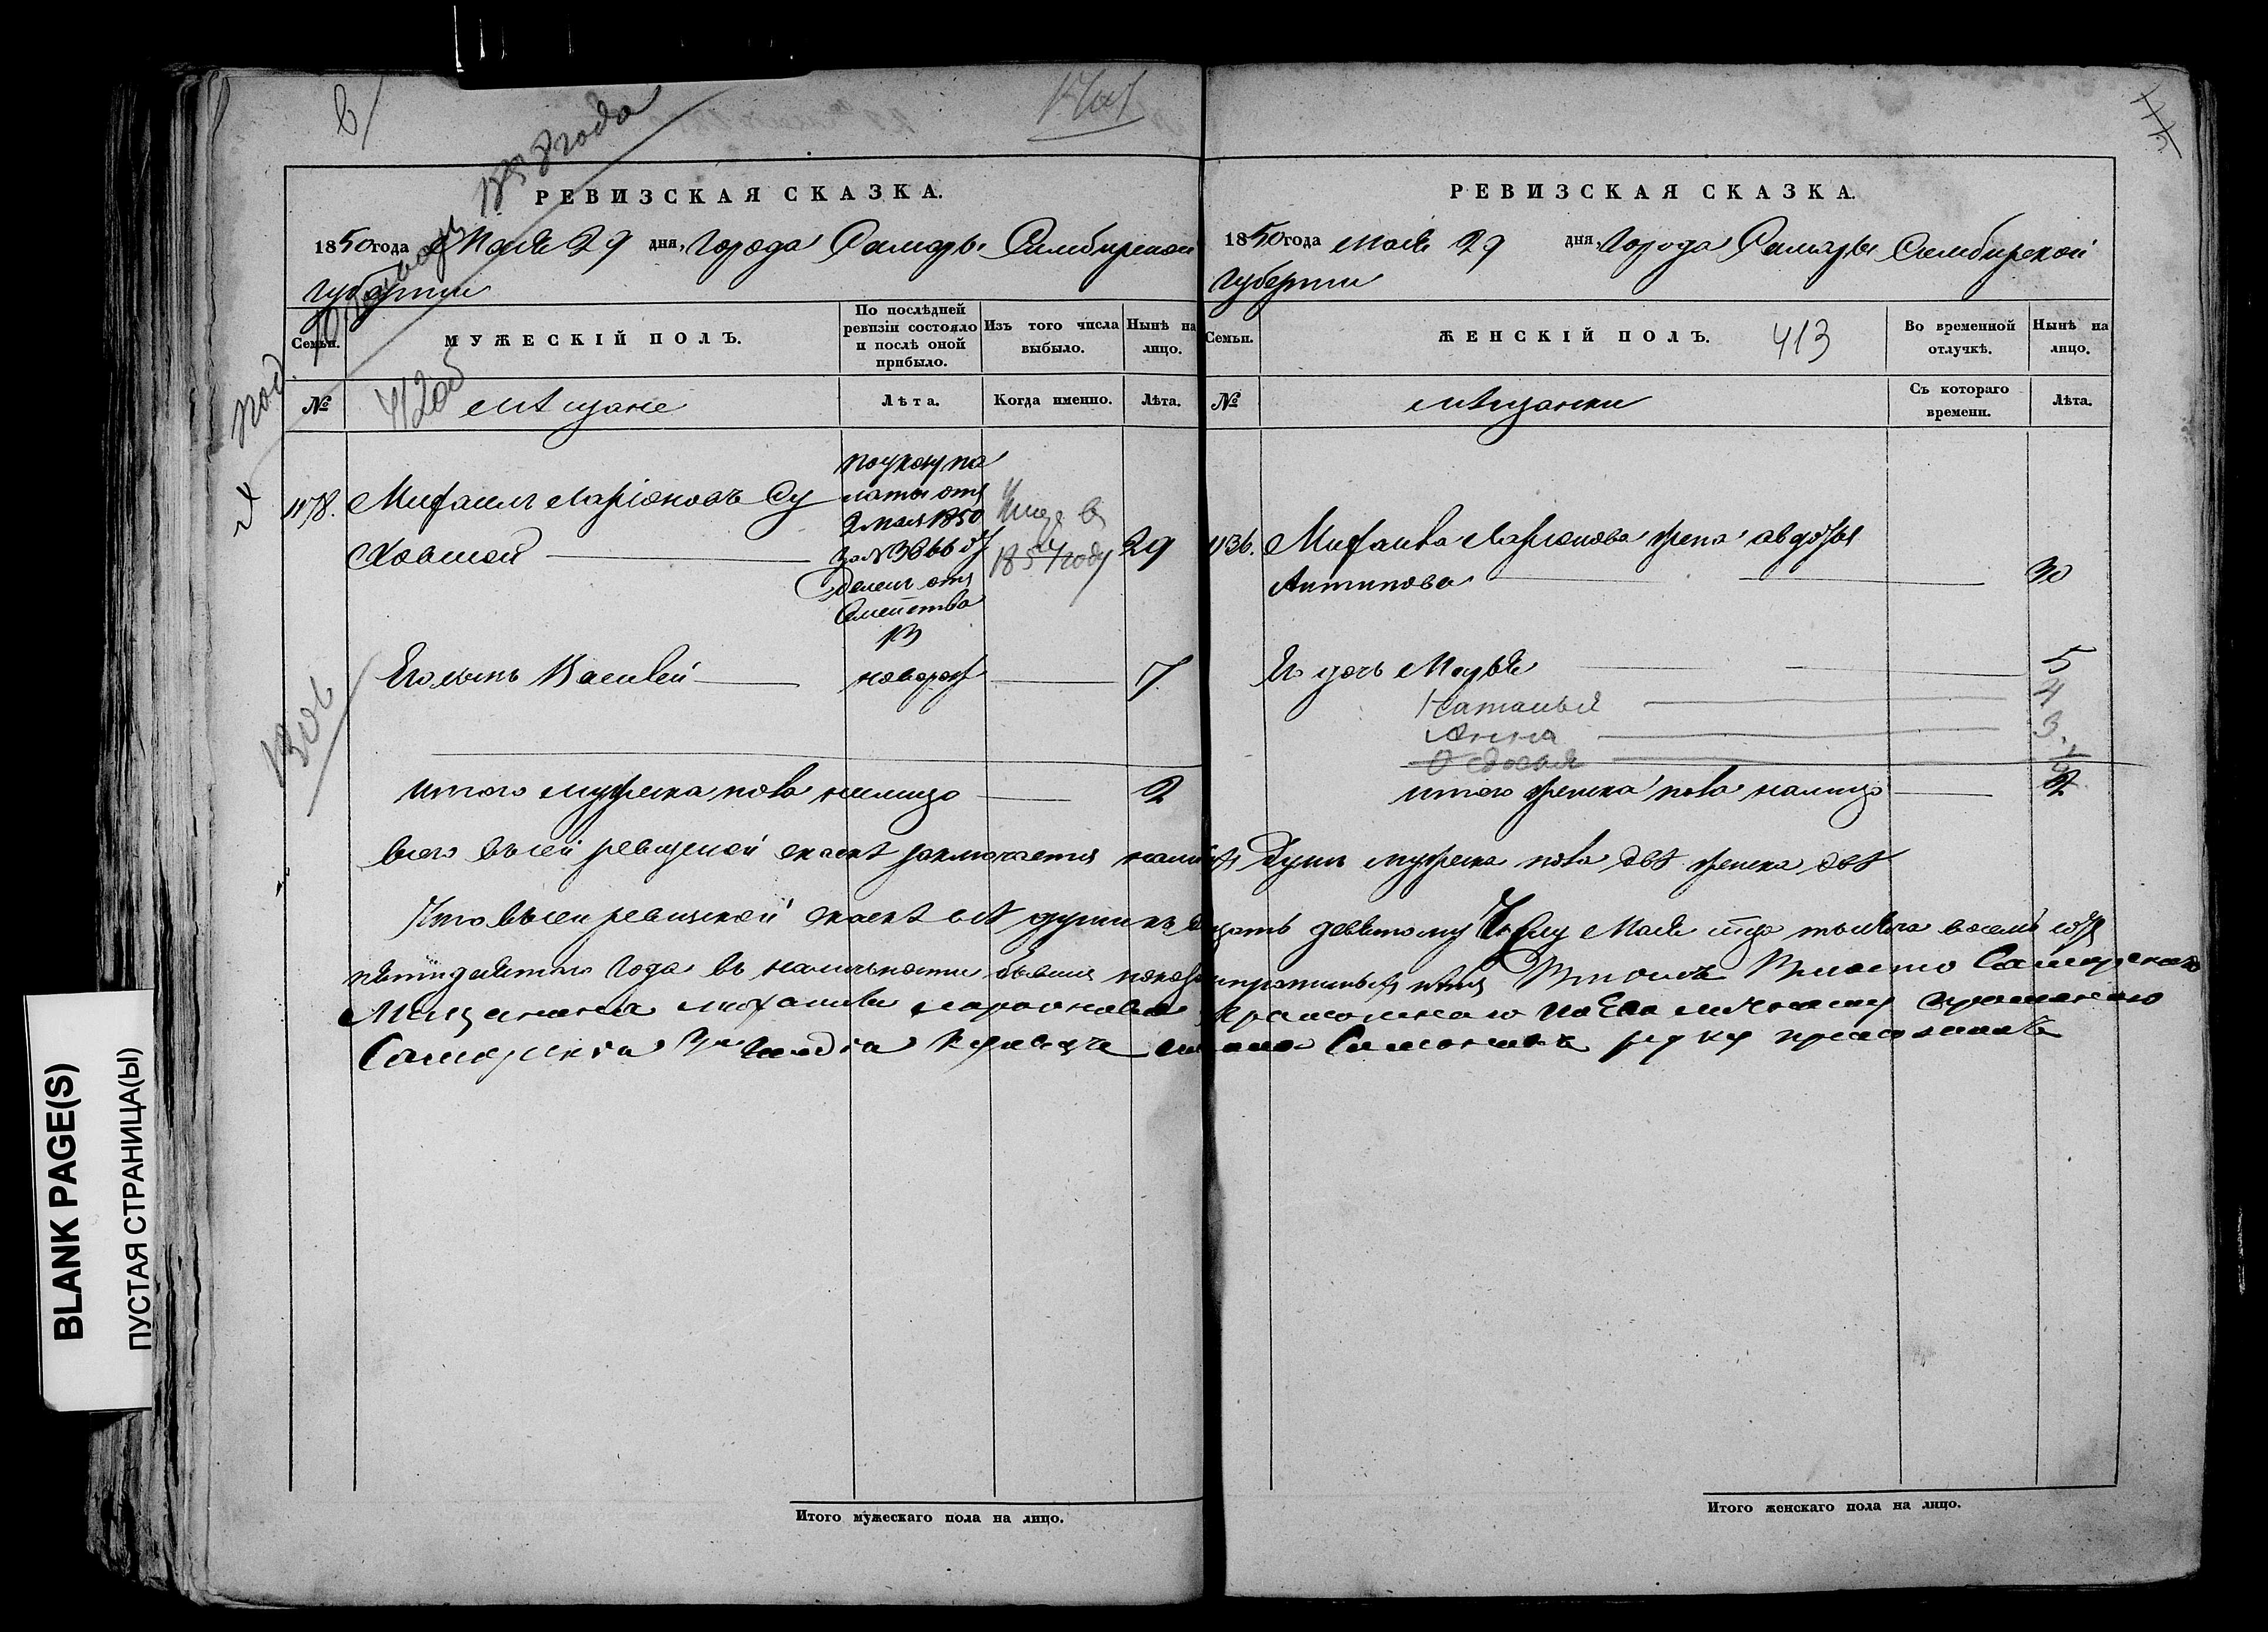 в
1858 года
РЕВИЗСКАЯ СКАЗКА.
1850 года Мая 29 дня, Города Самары Симбирской
губернии
Семьи.
МУЖЕСКІЙ ПОЛЪ.
По послѣдней ревизіи состояло и послѣ оной прибыло.
Изъ того числа выбыло.
Нынѣ на лицо.
№
412 об
мѣщане
Лѣта.
Когда именно.
Лѣта.
1178. Михаилъ Ларіоновъ Су
ховшой
по указу па
латы отъ
2 мая 1850
за № 3366 от
делен отъ
Семейства
29
Его сынъ Василей
новорож
7
130 б
итого мужеска пола налицо 2
РЕВИЗСКАЯ СКАЗКА.
1850 года мая 29 дня, Города Самары Симбирской
губернии
Семьи.
ЖЕНСКІЙ ПОЛЪ.
413
Во временной отлучкѣ.
Нынѣ на лицо.
№
мѣщанки
Съ котораго времени.
Лѣта.
1136. Михаила Ларіонова жена Авдотья
Антипова 30
Его дочь Марья 5
Наталья 4
Анна 3
Федосья
итого женска пола налицо 2
всего в сей ревизской сказкѣ заключается налицо душъ мужеска пола двѣ женска двѣ
Что в сей ревизской сказкѣ всѣ души къ двацать девятому числу Мая тысяча восемь сотъ
пятидесятого года въ наличности бывшия
Мещанина михаила ларионова
руку приложилъ
Итого мужескаго пола на лицо.
Итого женскаго пола на лицо.
BLANK PAGE(S)
ПУСТАЯ СТРАНИЦА(Ы)